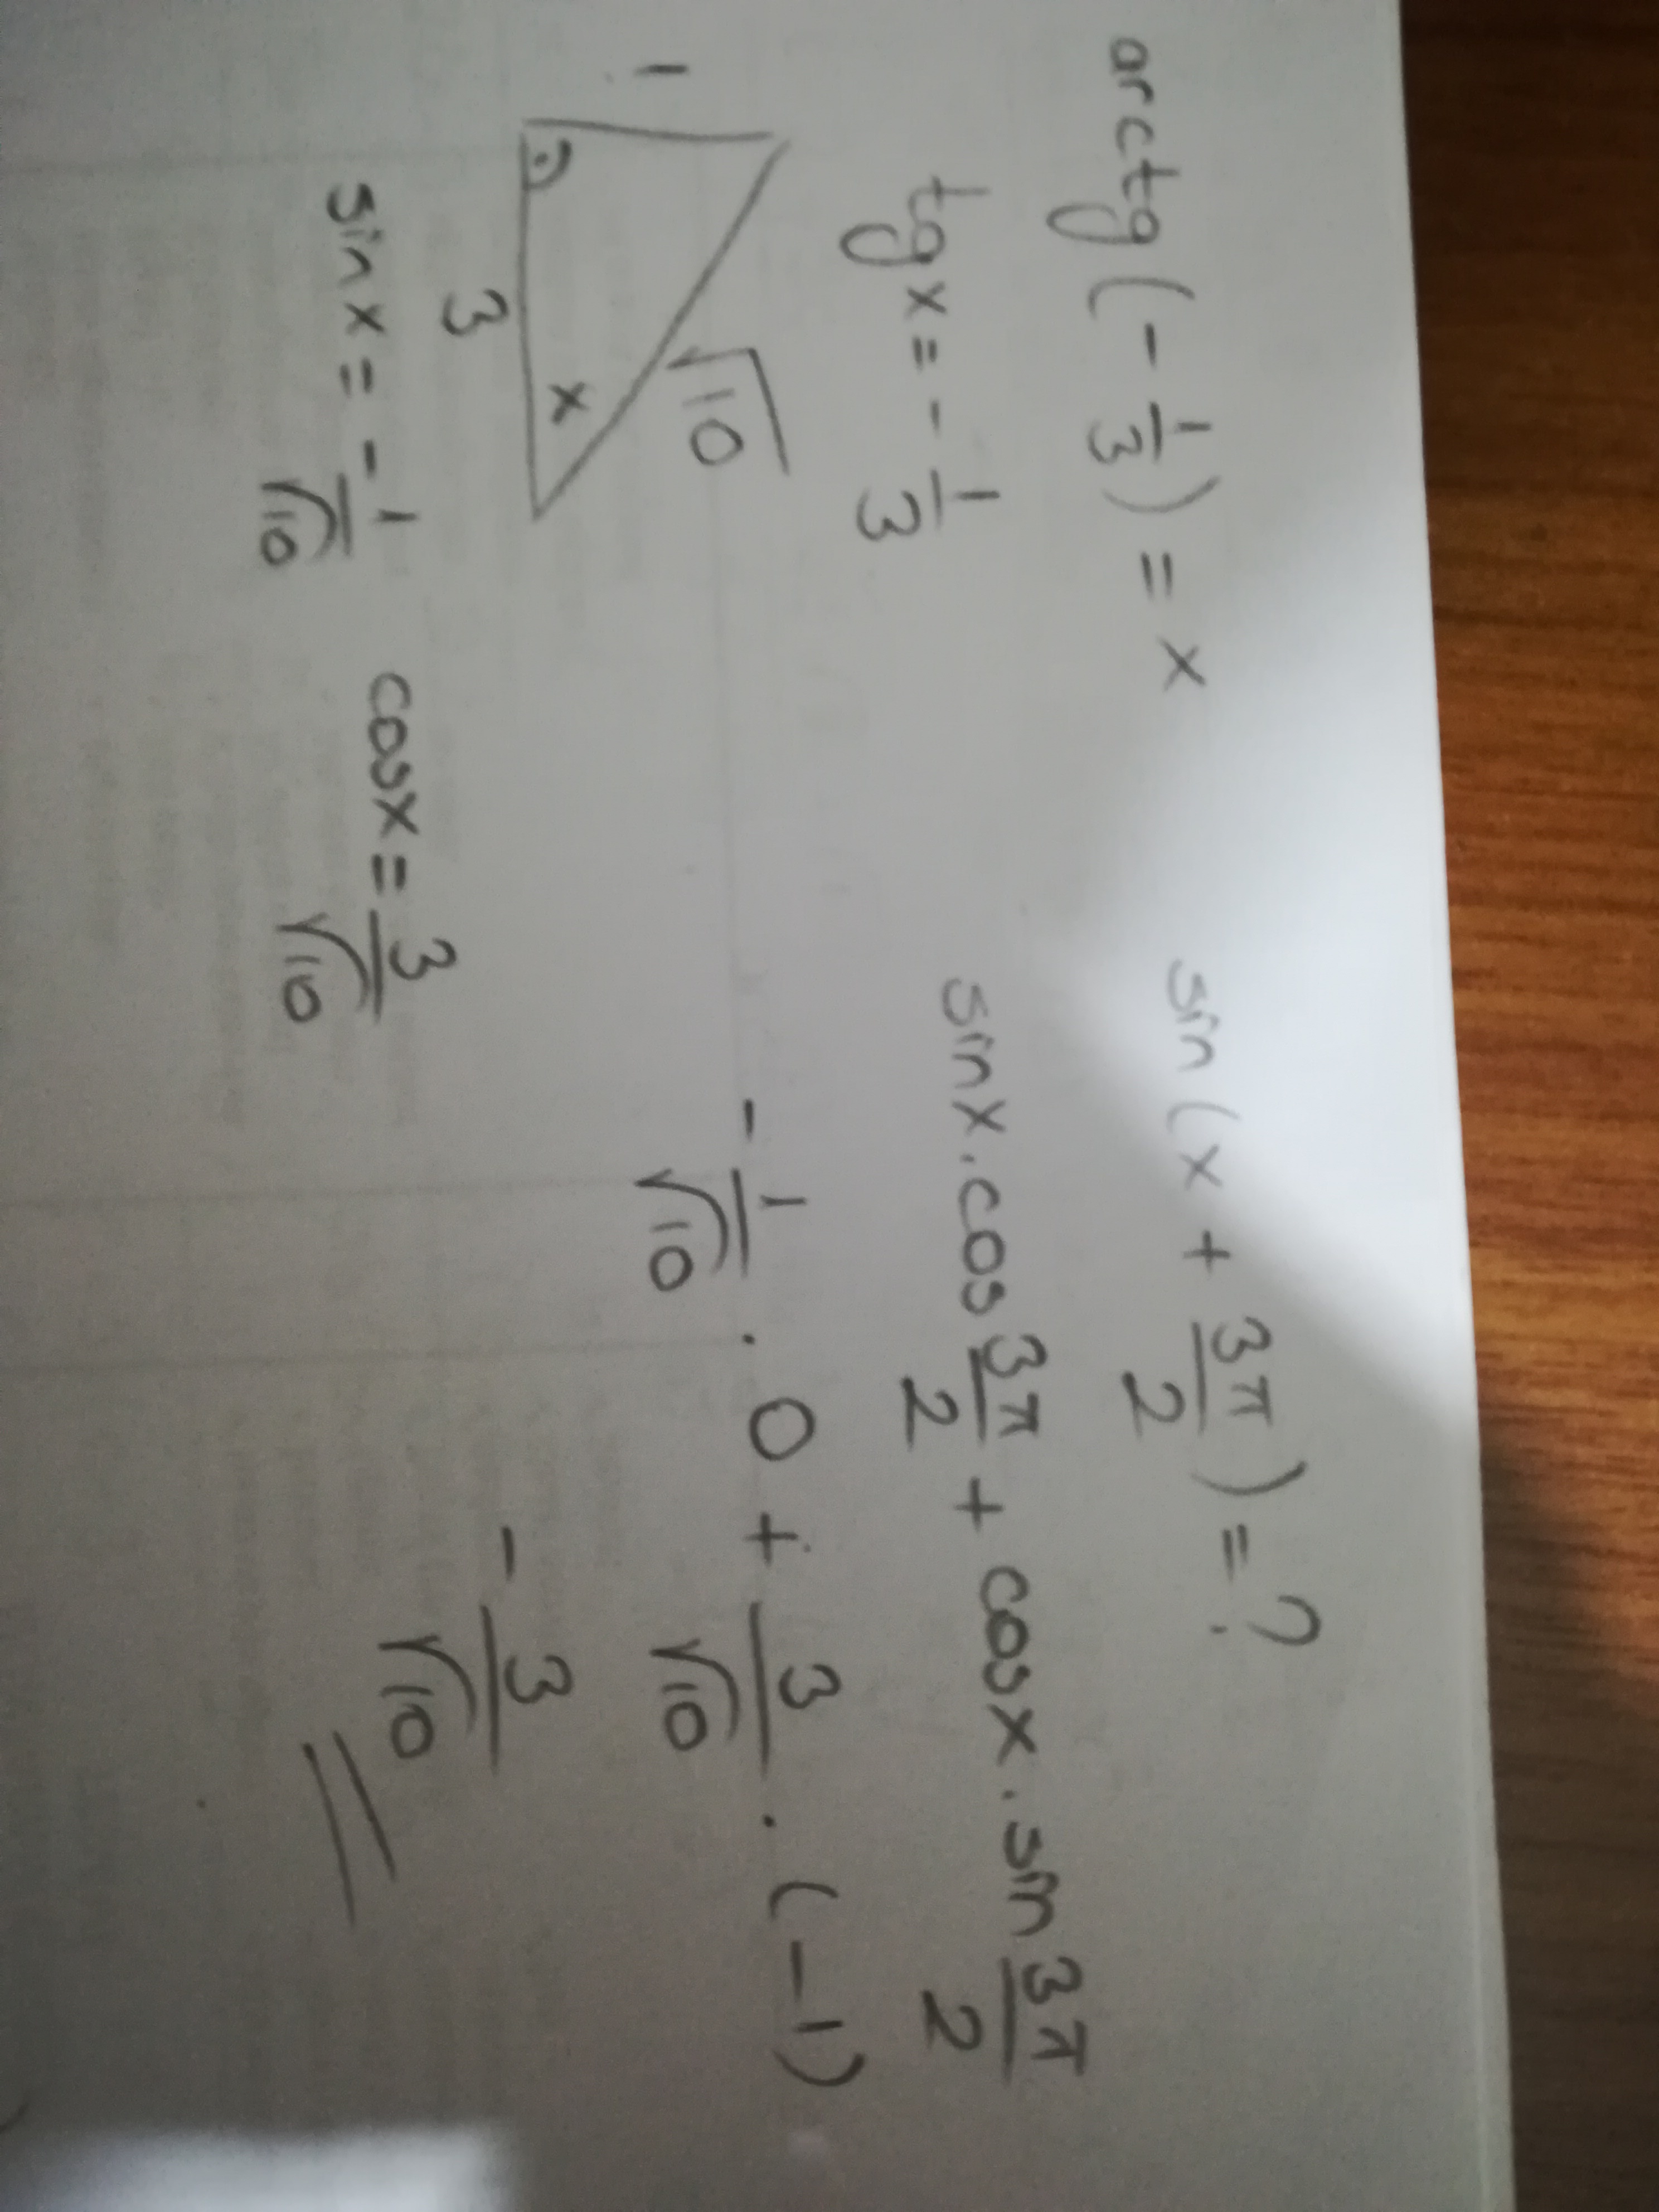 arctg(-1/3) = x
tgx = -1/3
1
√10
x
3
sinx = -1/√10 cosx = 3/√10
sin(x + 3π/2) = ?
sinx.cos 3π/2 + cosx.sin 3π/2
-1/√10 . 0 + 3/√10 . (-1)
-3/√10